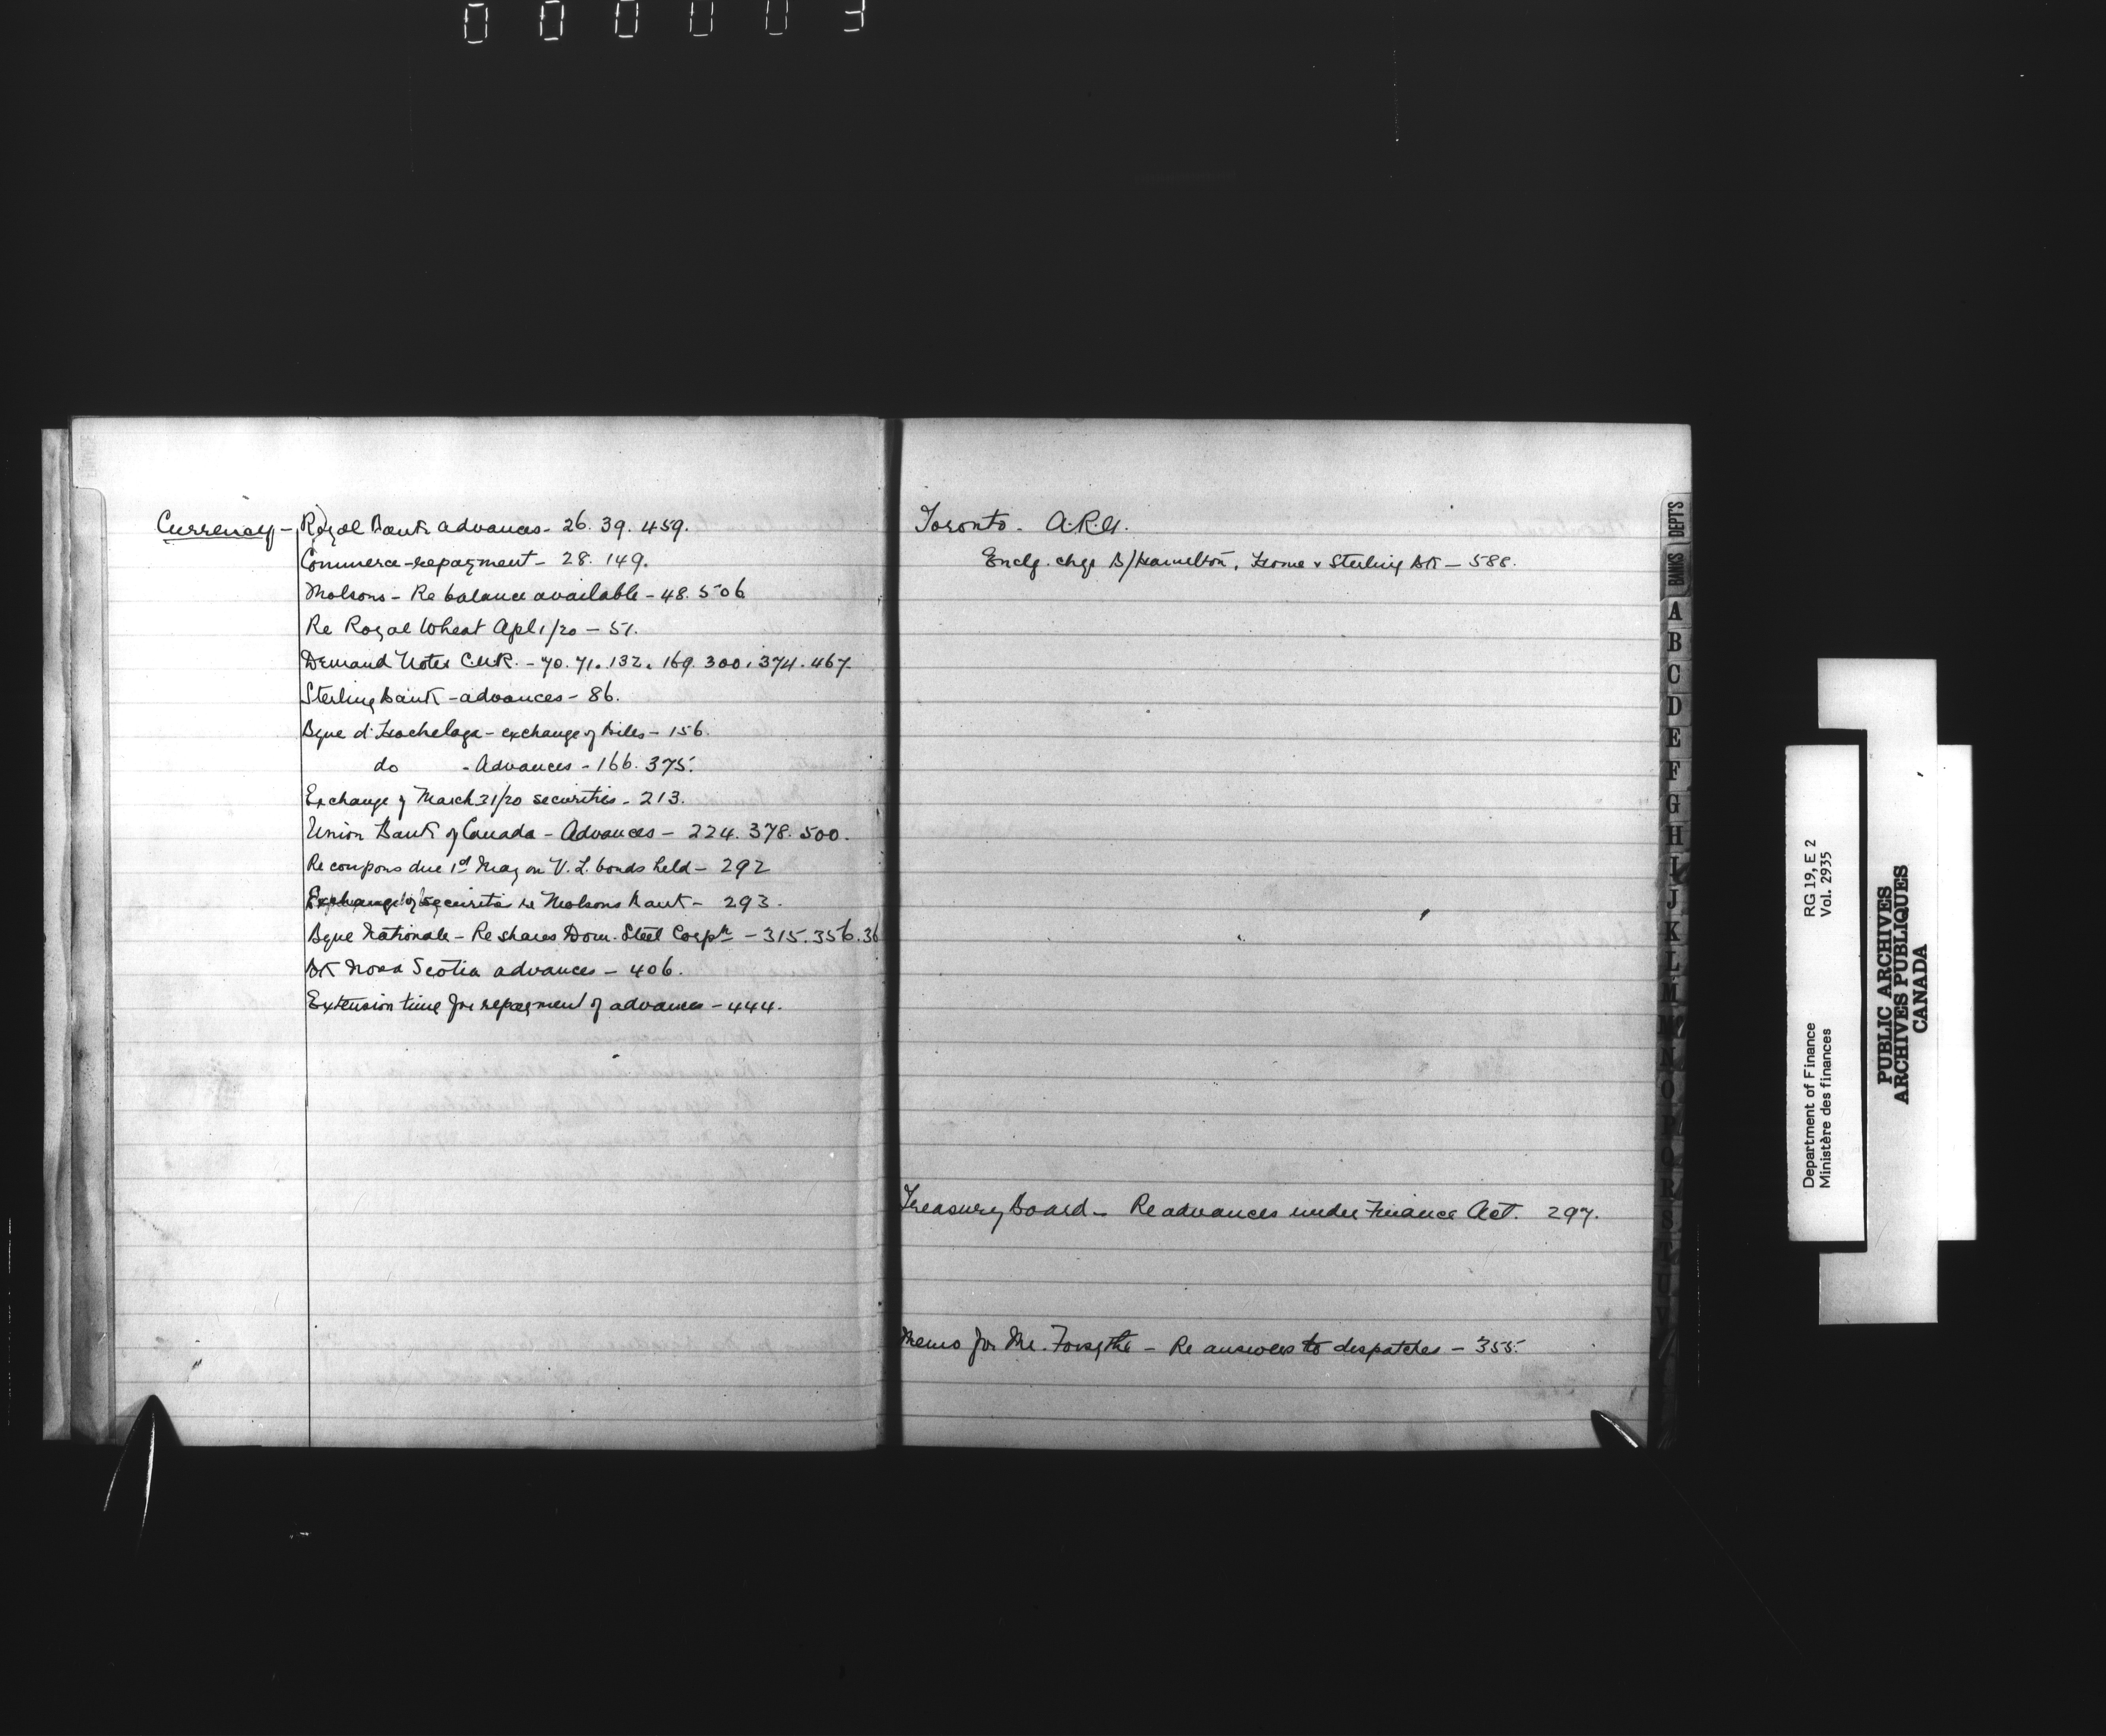 000003
Currency - Royal Bank advances - 26. 39. 459.
Commerce - repayment - 28. 149.
Molsons - Re balance available - 48. 506
Re Royal Wheat Apl 1/20 - 51.
Demand Notes C.N.R. - 70. 71. 132. 169. 300. 374. 467.
Sterling Bank - advances - 86.
Bque d'Hochelaga - exchange of Bills - 156.
do - Advances - 166. 375.
Exchange of March 31/20 securities - 213.
Union Bank of Canada - Advances - 224. 378. 500.
Re coupons due 1st May on V. L. bonds held - 292
Exchange of securities re Molsons Bank - 293.
Bque Nationale - Re shares Dom. Steel Corpn - 315. 356. 36
Bk Nova Scotia advances - 406.
Extension time for repayment of advances - 444.
Toronto - A.R.G.
Enclg. chqs B/Hamilton, Home & Sterling Bk - 588.
Treasury Board - Re advances under Finance Act. 297.
Memo for Mr. Forsythe - Re answers to despatches - 355.
DEPT'S
BANKS
A
B
C
D
E
F
G
H
I
J
K
L
M
Mc
N
O
P
Q
R
S
T
U
V
RG 19, E 2
Vol. 2935
Department of Finance
Ministère des finances
PUBLIC ARCHIVES
ARCHIVES PUBLIQUES
CANADA